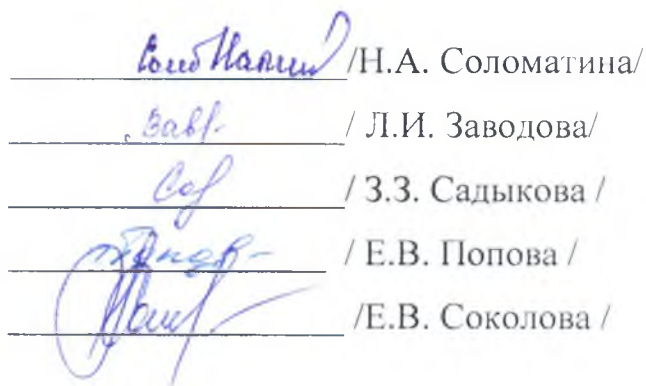 /Н.А. Соломатина/
/ Л.И. Заводова/
/ З.З. Садыкова /
/ Е.В. Попова /
/Е.В. Соколова /